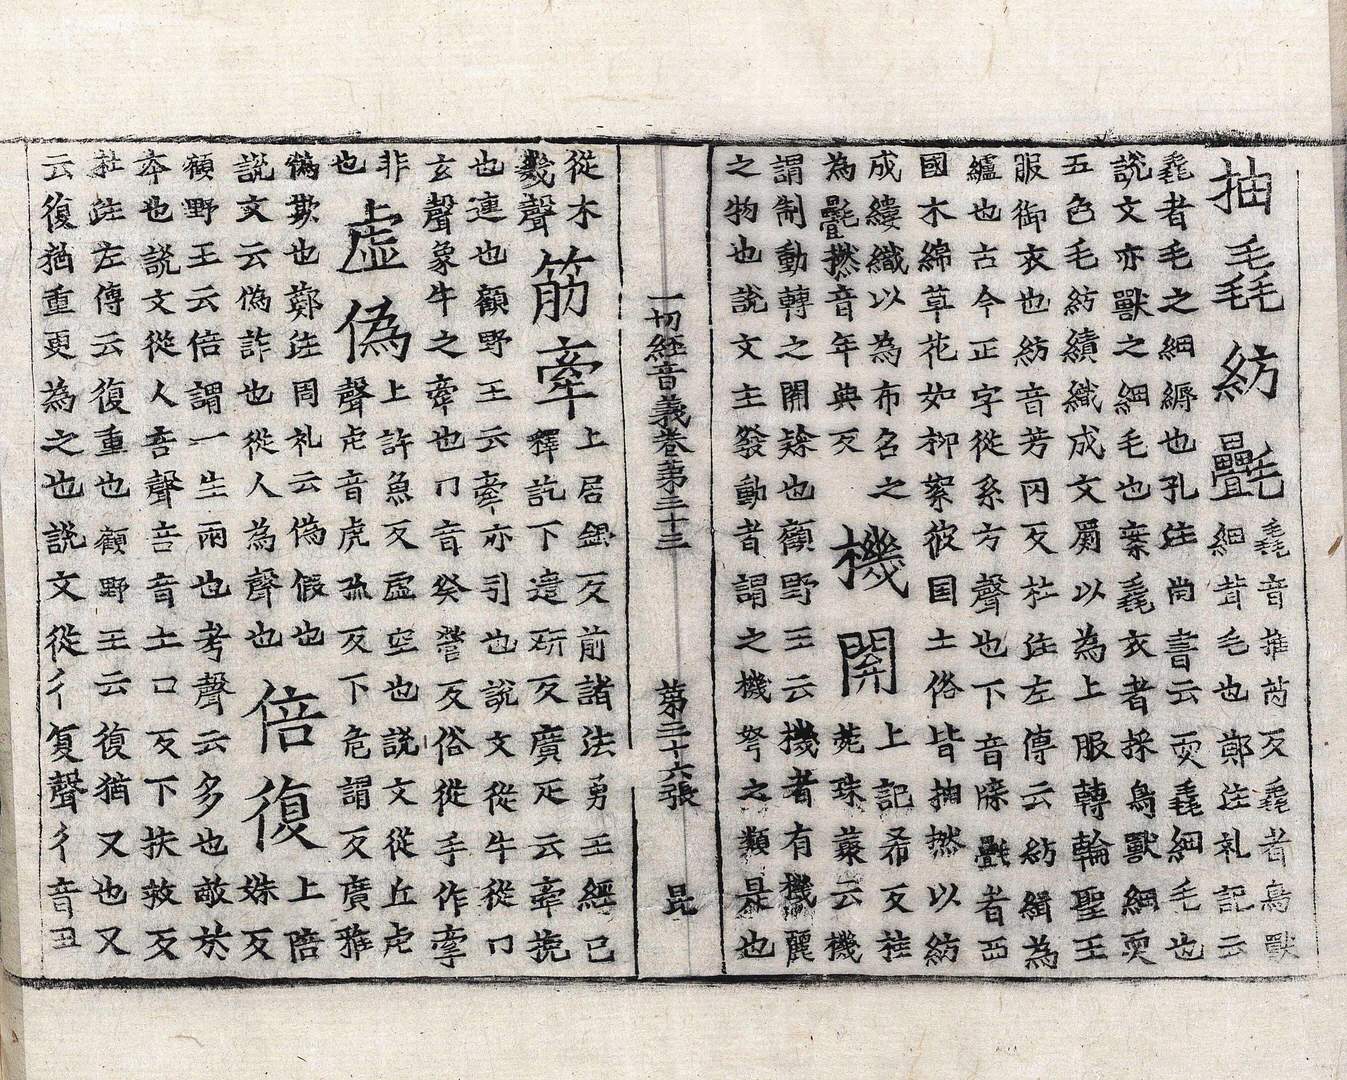 抽毳紡㲲毳音推芮反毳者鳥獸
細茸毛也鄭注礼記云
毳者毛之細縟也孔注尚書云耎毳細毛也
說文亦獸之細毛也案毳衣者採鳥獸細耎
五色毛紡績織成文罽以為上服轉輪聖王
服御衣也紡音芳冈反杜注左傳云紡緝為
纑也古今正字從糸方聲也下音牒㲲者西
國木綿草花如柳絮彼国土俗皆抽撚以紡
成縷織以為布名之
為㲲撚音年典反
機關
上記希反桂
苑珠叢云機
謂制動轉之關鍵也顧野王云機者有機麗
之物也說文主發動者謂之機弩之類是也
一切經音義卷第三十三 第三十六張 昆
從木
幾聲
筋牽
上居銀反前諸法勇王經已
釋訖下遣硏反廣疋云牽挽
也連也顧野王云牽亦引也說文從牛從冂
玄聲象牛之牽也冂音癸營反俗從手作㧓
非
也
虛偽
上許魚反虛空也說文從丘虍
聲虍音虎孤反下危謂反廣雅
偽欺也鄭注周礼云偽假也
說文云偽詐也從人為聲也
倍復
上陪
妹反
顧野王云倍謂一生兩也考聲云多也敵於
本也說文從人咅聲咅音土口反下扶救反
杜注左傳云復重也顧野王云復猶又也又
云復猶重更為之也說文從彳复聲彳音丑